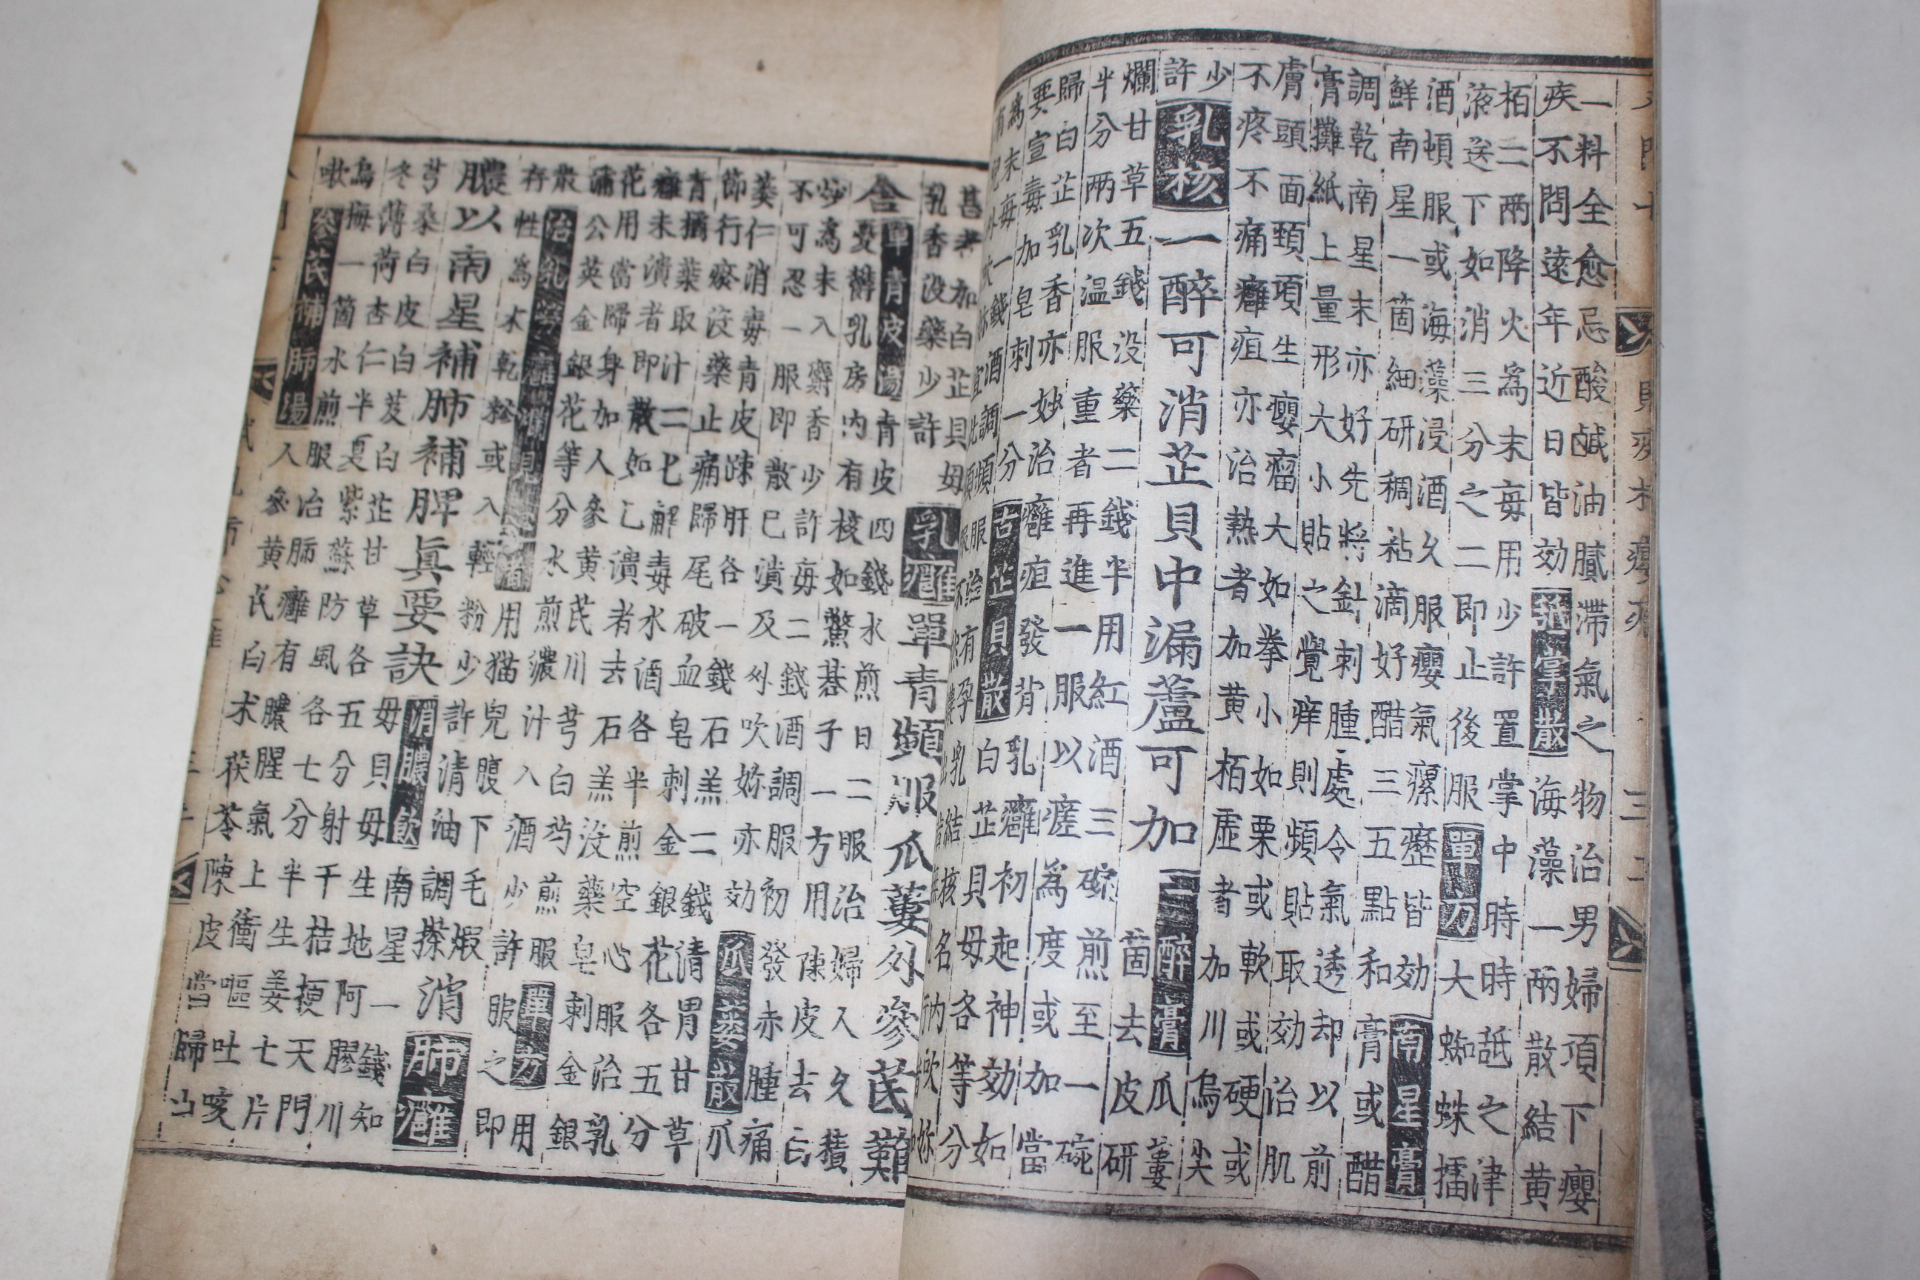 一料全愈忌酸鹹油膩滯氣之物治男婦項下癭
疾不問遠年近日皆効 掌散 海藻一兩散結黃
栢二兩降火爲末每用少許置掌中時時舐之津
液送下如消三分之二即止後服 單方 大蜘蛛擂
酒頓服或海藻浸酒久服癭氣瘰癧皆効 南星膏
鮮南星一箇細研稠粘滴好醋三五點和膏或醋
調乾南星末亦好先將針刺腫處令氣透却以前
膏攤紙上量形大小貼之覺痒則頻貼取効治肌
膚頭面頸項生癭瘤大如拳小如栗或軟或硬或
不疼不痛癰疽亦治熱者加黃栢虛者加川烏尖
少許 乳核 一醉可消芷貝中漏蘆可加 一醉膏 瓜蔞
箇去皮研
爛甘草五錢沒藥二錢半用紅酒三碗煎至一碗
半分兩次温服重者再進一服以瘥爲度或加當
歸白芷乳香亦妙治癰疽發背乳癰初起神効如
要宣毒加皂刺一分 古芷貝散 白芷貝母各等分
爲末每一錢酒調頻服治有孕乳結核名內吹妳
甚者加白芷貝母
乳香沒藥少許
乳癰 單青頻服瓜蔞外參芪難
舍 單青皮湯 青皮四錢水煎日二服治婦人久積
憂鬱乳房內有核如鱉碁子一方用陳皮去白
炒爲末入麝香少許每二錢酒調服初發赤腫痛
不可忍一服即散已潰及外吹妳亦効 瓜蔞散 瓜
蔞仁消毒青皮踈肝各一錢石羔二錢清胃甘草
節行瘀沒藥止痛歸尾破血皂刺金銀花各五分
青橘葉取汁二匕解毒水酒各半煎空心服治乳
癰未潰者即散如已潰者去石羔沒藥皂刺金銀
花用當歸身加人參黃芪川芎白芍煎服 單方 用
蒲公英金銀花等分水煎濃汁入酒少許服之即
散 治乳勞癰爛見心者 用猫兒腹下毛煆
存性爲末乾糝或入輕粉少許清油調搽
消 肺癰
膿以南星補肺補脾眞要訣 消膿飲 南星一錢知
母貝母生地阿膠川
芎桑白皮白芨白芷甘草各五分射干桔梗天門
冬薄荷杏仁半夏紫蘇防風各七分半生姜七片
烏梅一箇水煎服治肺癰有膿腥氣上衝嘔吐咳
嗽 參芪補肺湯 人參黃芪白朮茯苓陳皮當歸山